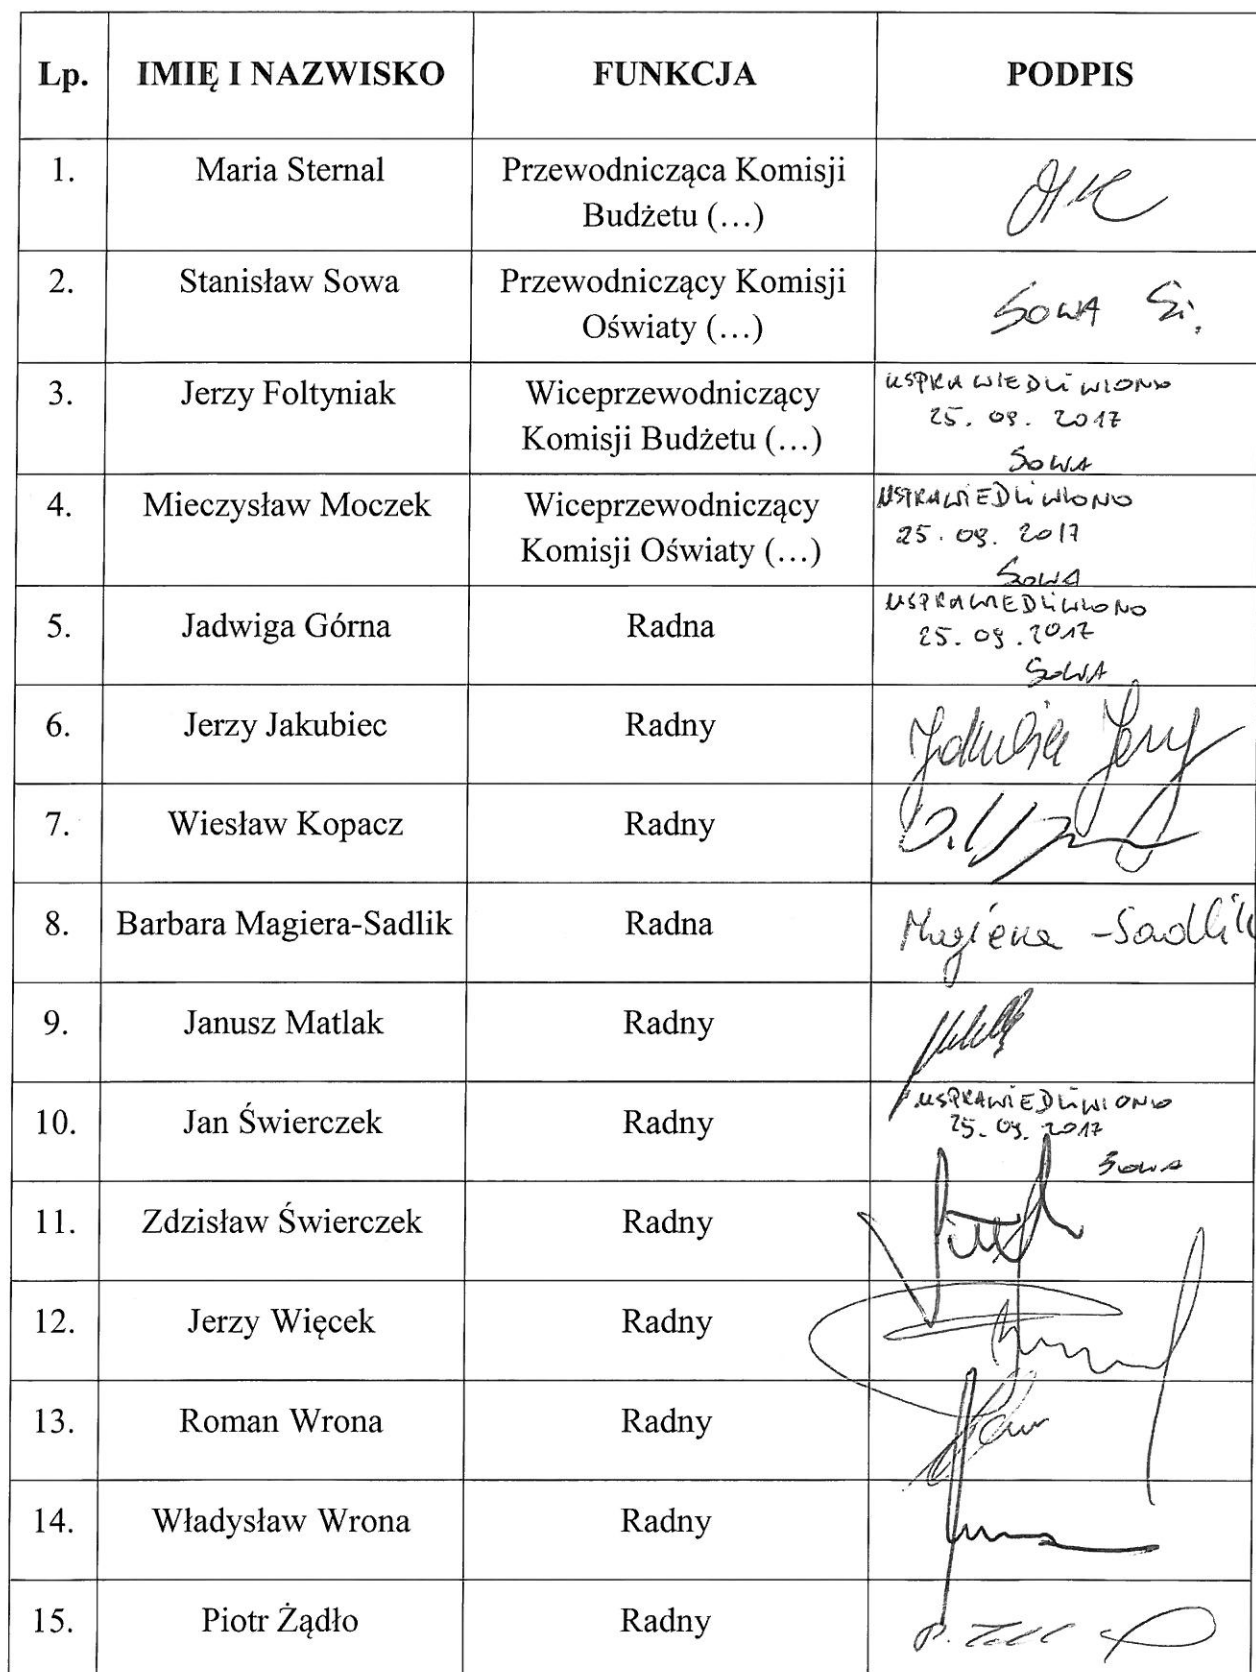 Lp. IMIĘ I NAZWISKO FUNKCJA PODPIS
1. Maria Sternal Przewodnicząca Komisji
Budżetu (…)
2. Stanisław Sowa Przewodniczący Komisji
Oświaty (…) SOWA
3. Jerzy Foltyniak Wiceprzewodniczący USPRAWIEDLIWIONO
Komisji Budżetu (…) 25. 09. 2017
SOWA
4. Mieczysław Moczek Wiceprzewodniczący USPRAWIEDLIWIONO
Komisji Oświaty (…) 25. 09. 2017
SOWA
5. Jadwiga Górna Radna USPRAWIEDLIWIONO
25. 09. 2017
SOWA
6. Jerzy Jakubiec Radny Jakubiec Jerzy
7. Wiesław Kopacz Radny
8. Barbara Magiera-Sadlik Radna Magiera-Sadlik
9. Janusz Matlak Radny
10. Jan Świerczek Radny USPRAWIEDLIWIONO
25. 09. 2017
SOWA
11. Zdzisław Świerczek Radny
12. Jerzy Więcek Radny
13. Roman Wrona Radny
14. Władysław Wrona Radny
15. Piotr Żądło Radny